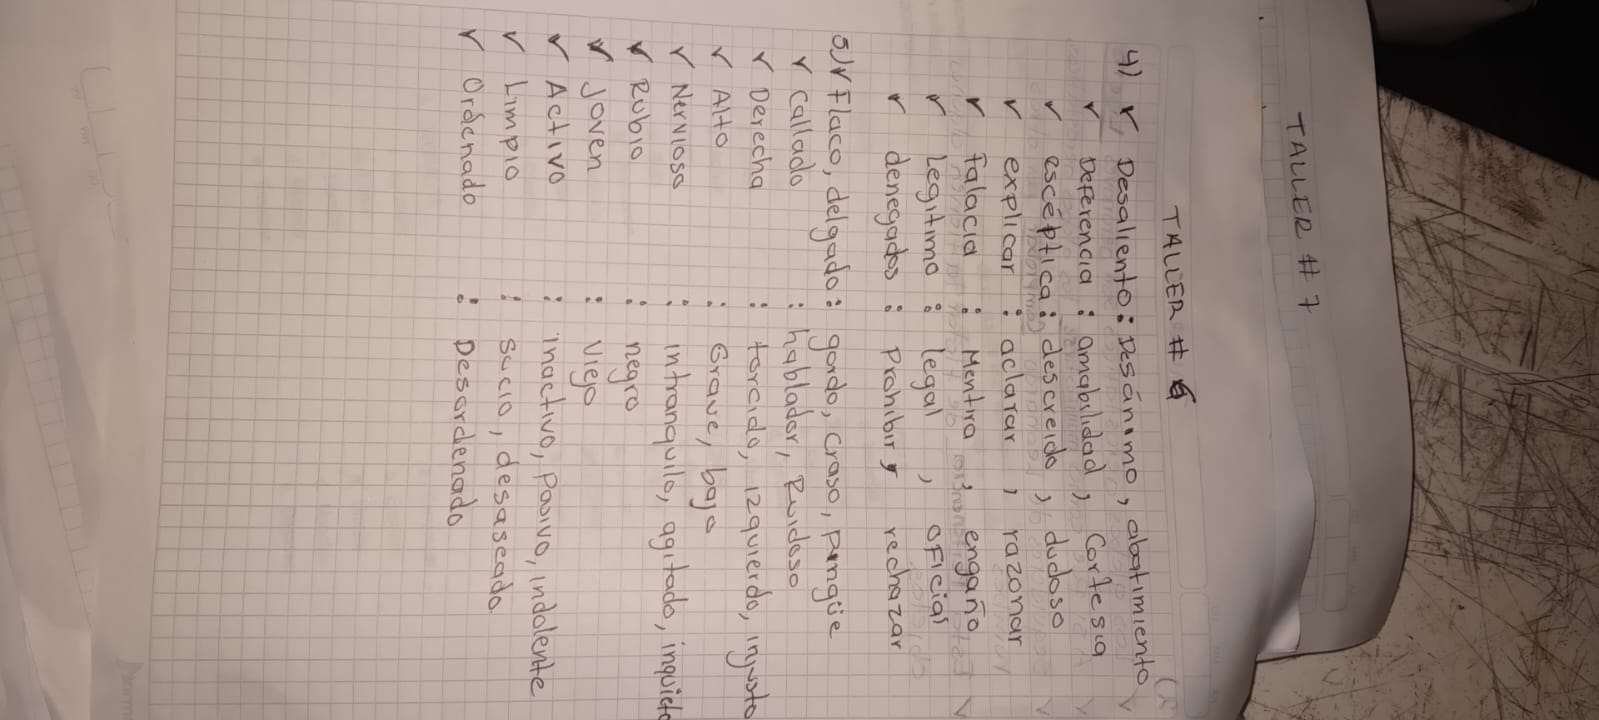 TALLER # 7
TALLER # 6
4) Desaliento : Desánimo, abatimiento
Deferencia : amabilidad, Cortesia
escéptica : descreido, dudoso
explicar : aclarar, razonar
falacia : Mentira, engaño
Legitimo : legal, oficial
denegados : Prohibir, rechazar
5) Flaco, delgado : gordo, craso, pingüe
Callado : hablador, Ruidoso
Derecha : torcido, izquierdo, injusto
Alto : Grave, bajo
Nervioso : intranquilo, agitado, inquieto
Rubio : negro
Joven : Viejo
Activo : inactivo, pasivo, indolente
Limpio : sucio, desaseado
Ordenado : Desordenado